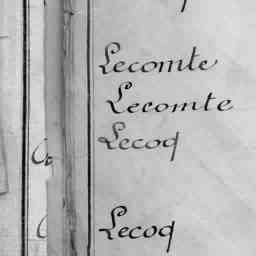 Lecomte
Lecomte
Lecoq
Lecoq